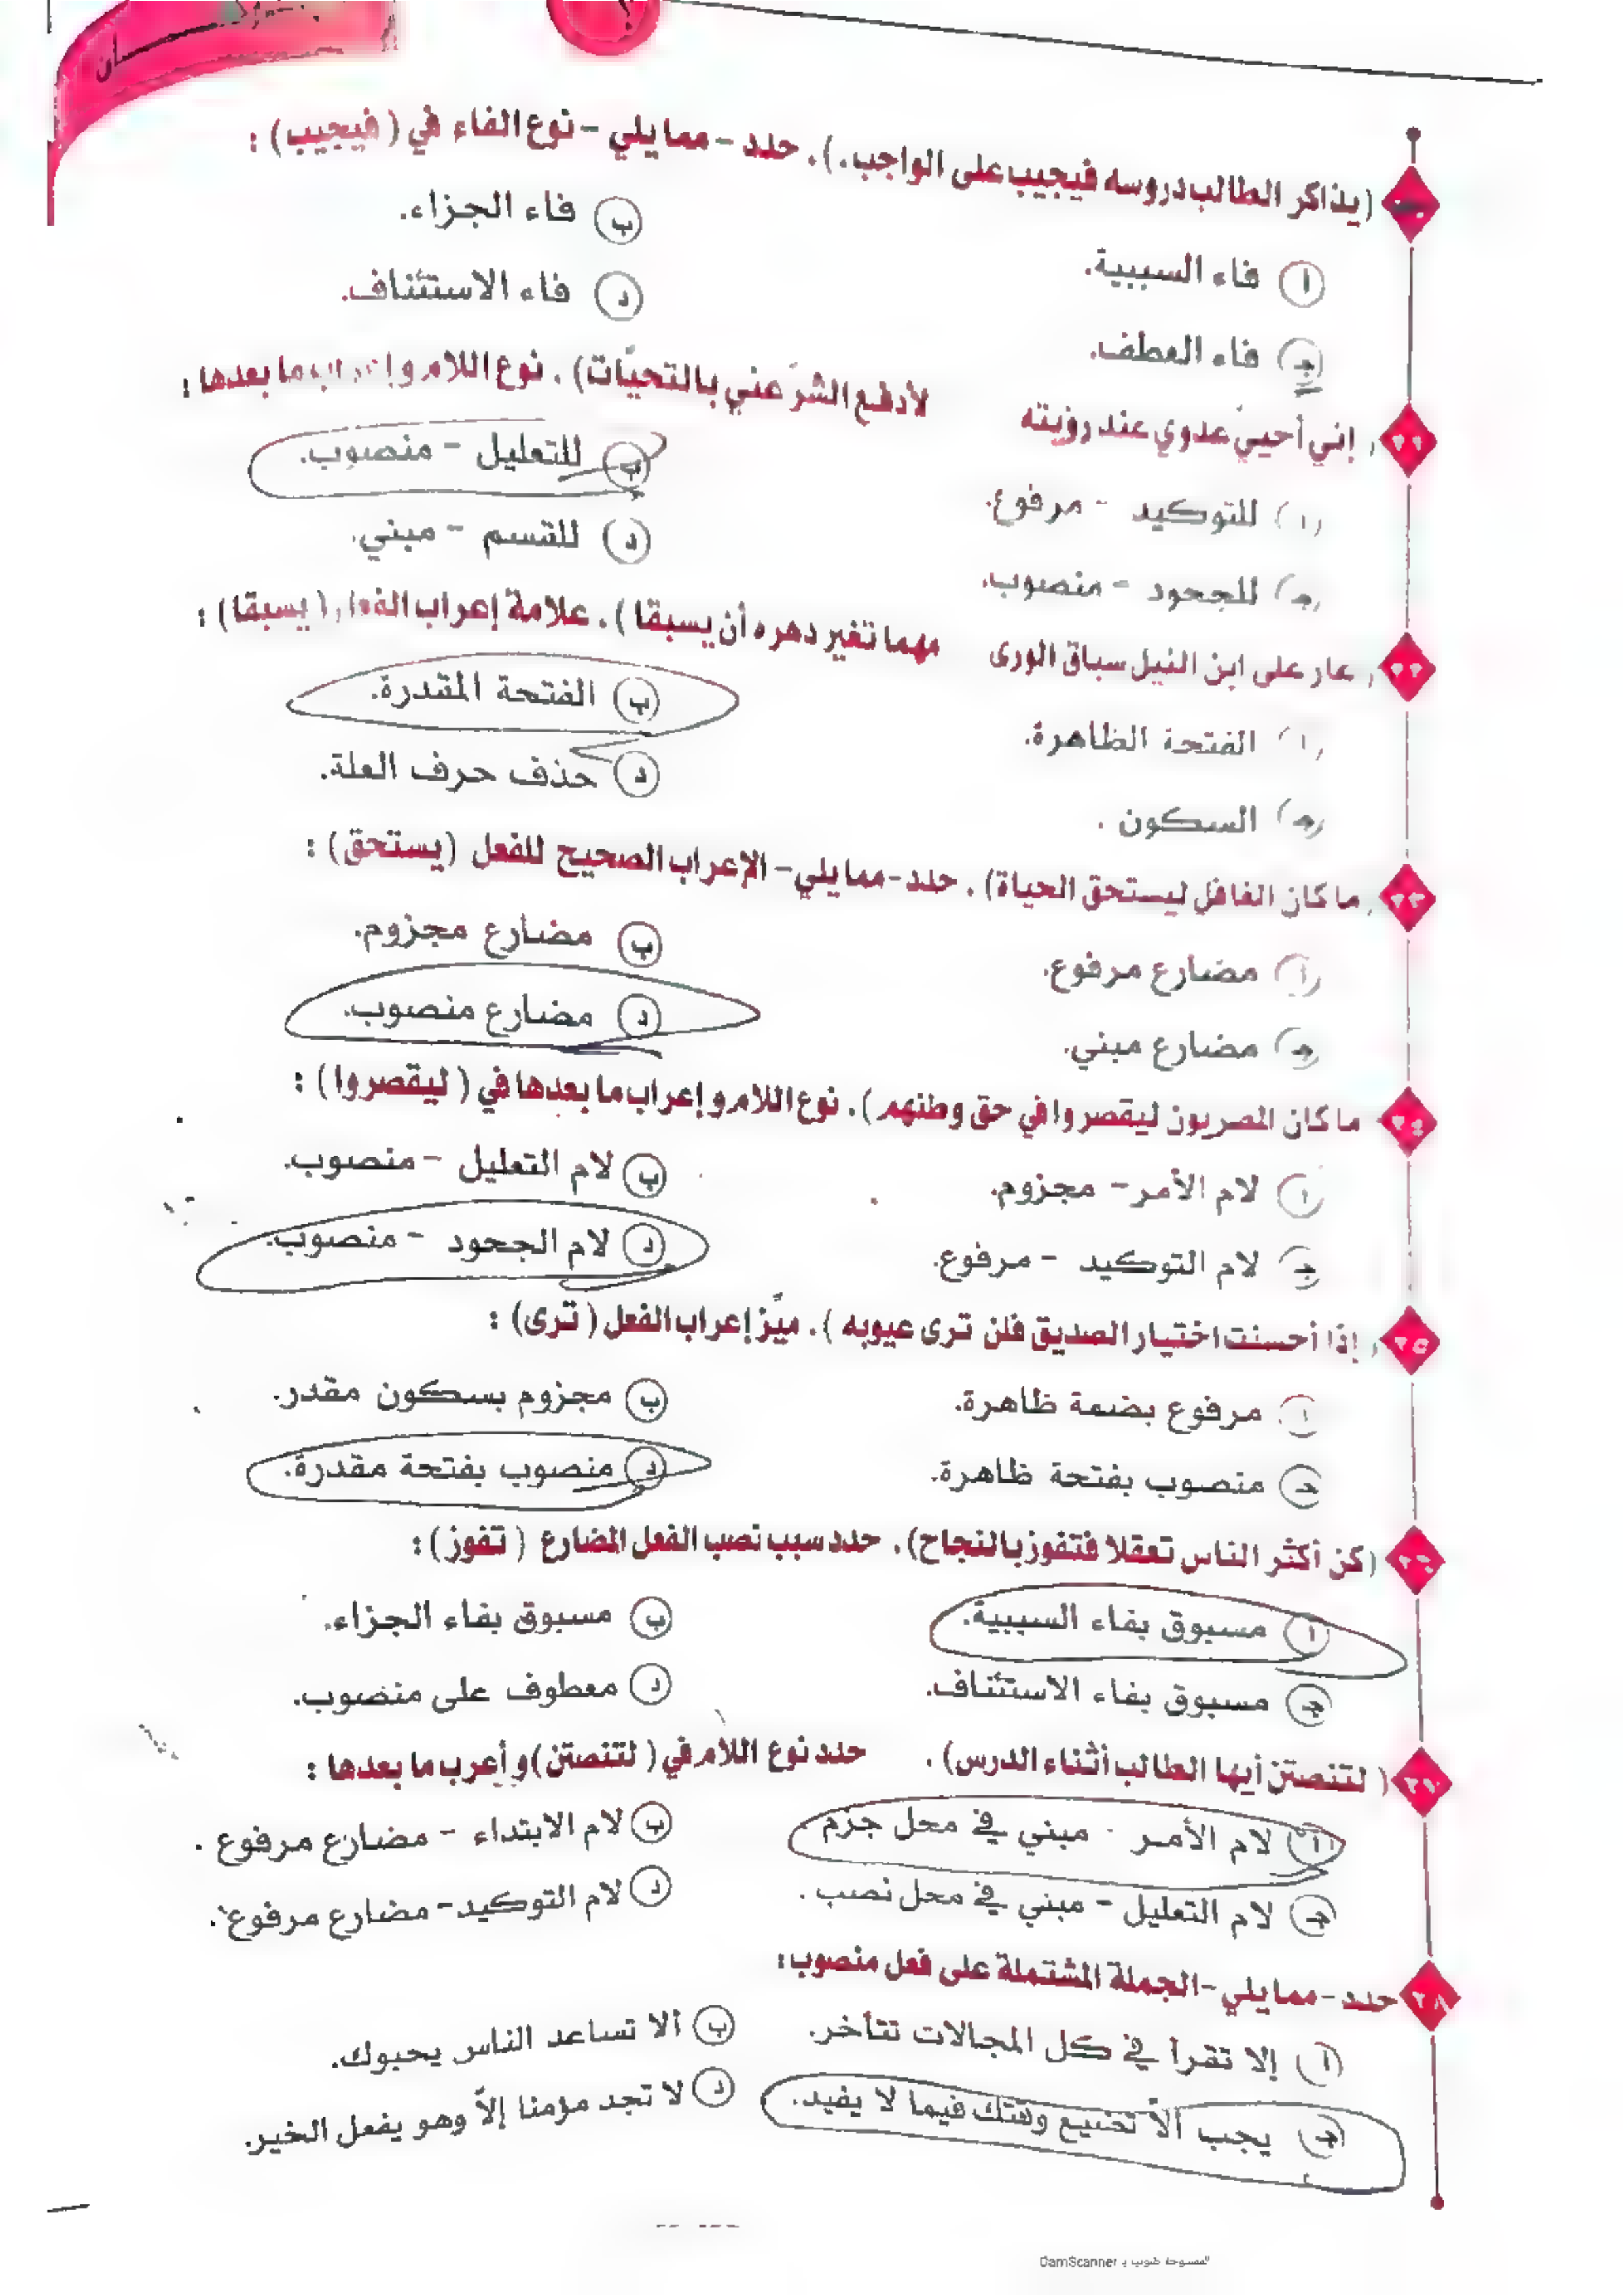 (يذاكر الطالب دروسه فيجيب على الواجب.). حدد - مما يلي - نوع الفاء في (فيجيب) :
أ فاء السببية.
ب فاء الجزاء.
جـ فاء العطف.
د فاء الاستئناف.
٢١ إني أحييّ عدوي عند رؤيته لأدفع الشرّ عني بالتحيّات) . نوع اللام وإعراب ما بعدها :
(أ) للتوكيد - مرفوع.
ب للتعليل - منصوب.
(جـ) للجحود - منصوب.
د للقسم - مبني.
٢٢ عار على ابن النيل سباق الورى مهما تغير دهره أن يسبقا ) . علامة إعراب الفعل (يسبقا) :
(أ) الفتحة الظاهرة.
ب الفتحة المقدرة.
(جـ) السكون .
د حذف حرف العلة.
٢٣ ما كان الغافل ليستحق الحياة) . حدد - مما يلي - الإعراب الصحيح للفعل (يستحق) :
أ مضارع مرفوع.
ب مضارع مجزوم.
جـ مضارع مبني.
د مضارع منصوب.
٢٤ ما كان المصريون ليقصروا في حق وطنهم ) . نوع اللام وإعراب ما بعدها في ( ليقصروا ) :
أ لام الأمر - مجزوم.
ب لام التعليل - منصوب.
جـ لام التوكيد - مرفوع.
د لام الجحود - منصوب.
٢٥ إذا أحسنت اختيار الصديق فلن ترى عيوبه ) . ميّز إعراب الفعل ( ترى) :
أ مرفوع بضمة ظاهرة.
ب مجزوم بسكون مقدر.
جـ منصوب بفتحة ظاهرة.
د منصوب بفتحة مقدرة.
٢٦ (كن أكثر الناس تعقلا فتفوز بالنجاح) . حدد سبب نصب الفعل المضارع ( تفوز) :
أ مسبوق بفاء السببية.
ب مسبوق بفاء الجزاء.
جـ مسبوق بفاء الاستئناف.
د معطوف على منصوب.
٢٧ ( لتنصتن أيها الطالب أثناء الدرس) . حدد نوع اللام في ( لتنصتن) وأعرب ما بعدها :
أ لام الأمر - مبني في محل جزم
ب لام الابتداء - مضارع مرفوع .
جـ لام التعليل - مبني في محل نصب .
د لام التوكيد - مضارع مرفوع.
٢٨ حدد - مما يلي - الجملة المشتملة على فعل منصوب:
أ إلا تقرأ في كل المجالات تتأخر.
ب ألا تساعد الناس يحبوك.
جـ يجب ألاّ تضيع وقتك فيما لا يفيد.
د لا تجد مؤمنا إلاّ وهو يفعل الخير.
الممسوحة ضوئيا بـ CamScanner